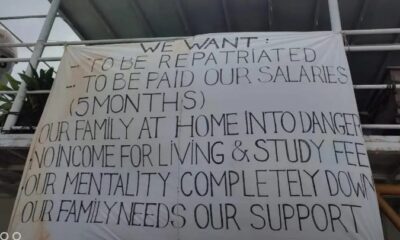 WE WANT :
- TO BE REPATRIATED
- TO BE PAID OUR SALARIES
(5 MONTHS)
OUR FAMILY AT HOME INTO DANGER
. NO INCOME FOR LIVING & STUDY FEE
. OUR MENTALITY COMPLETELY DOWN
. OUR FAMILY NEEDS OUR SUPPORT